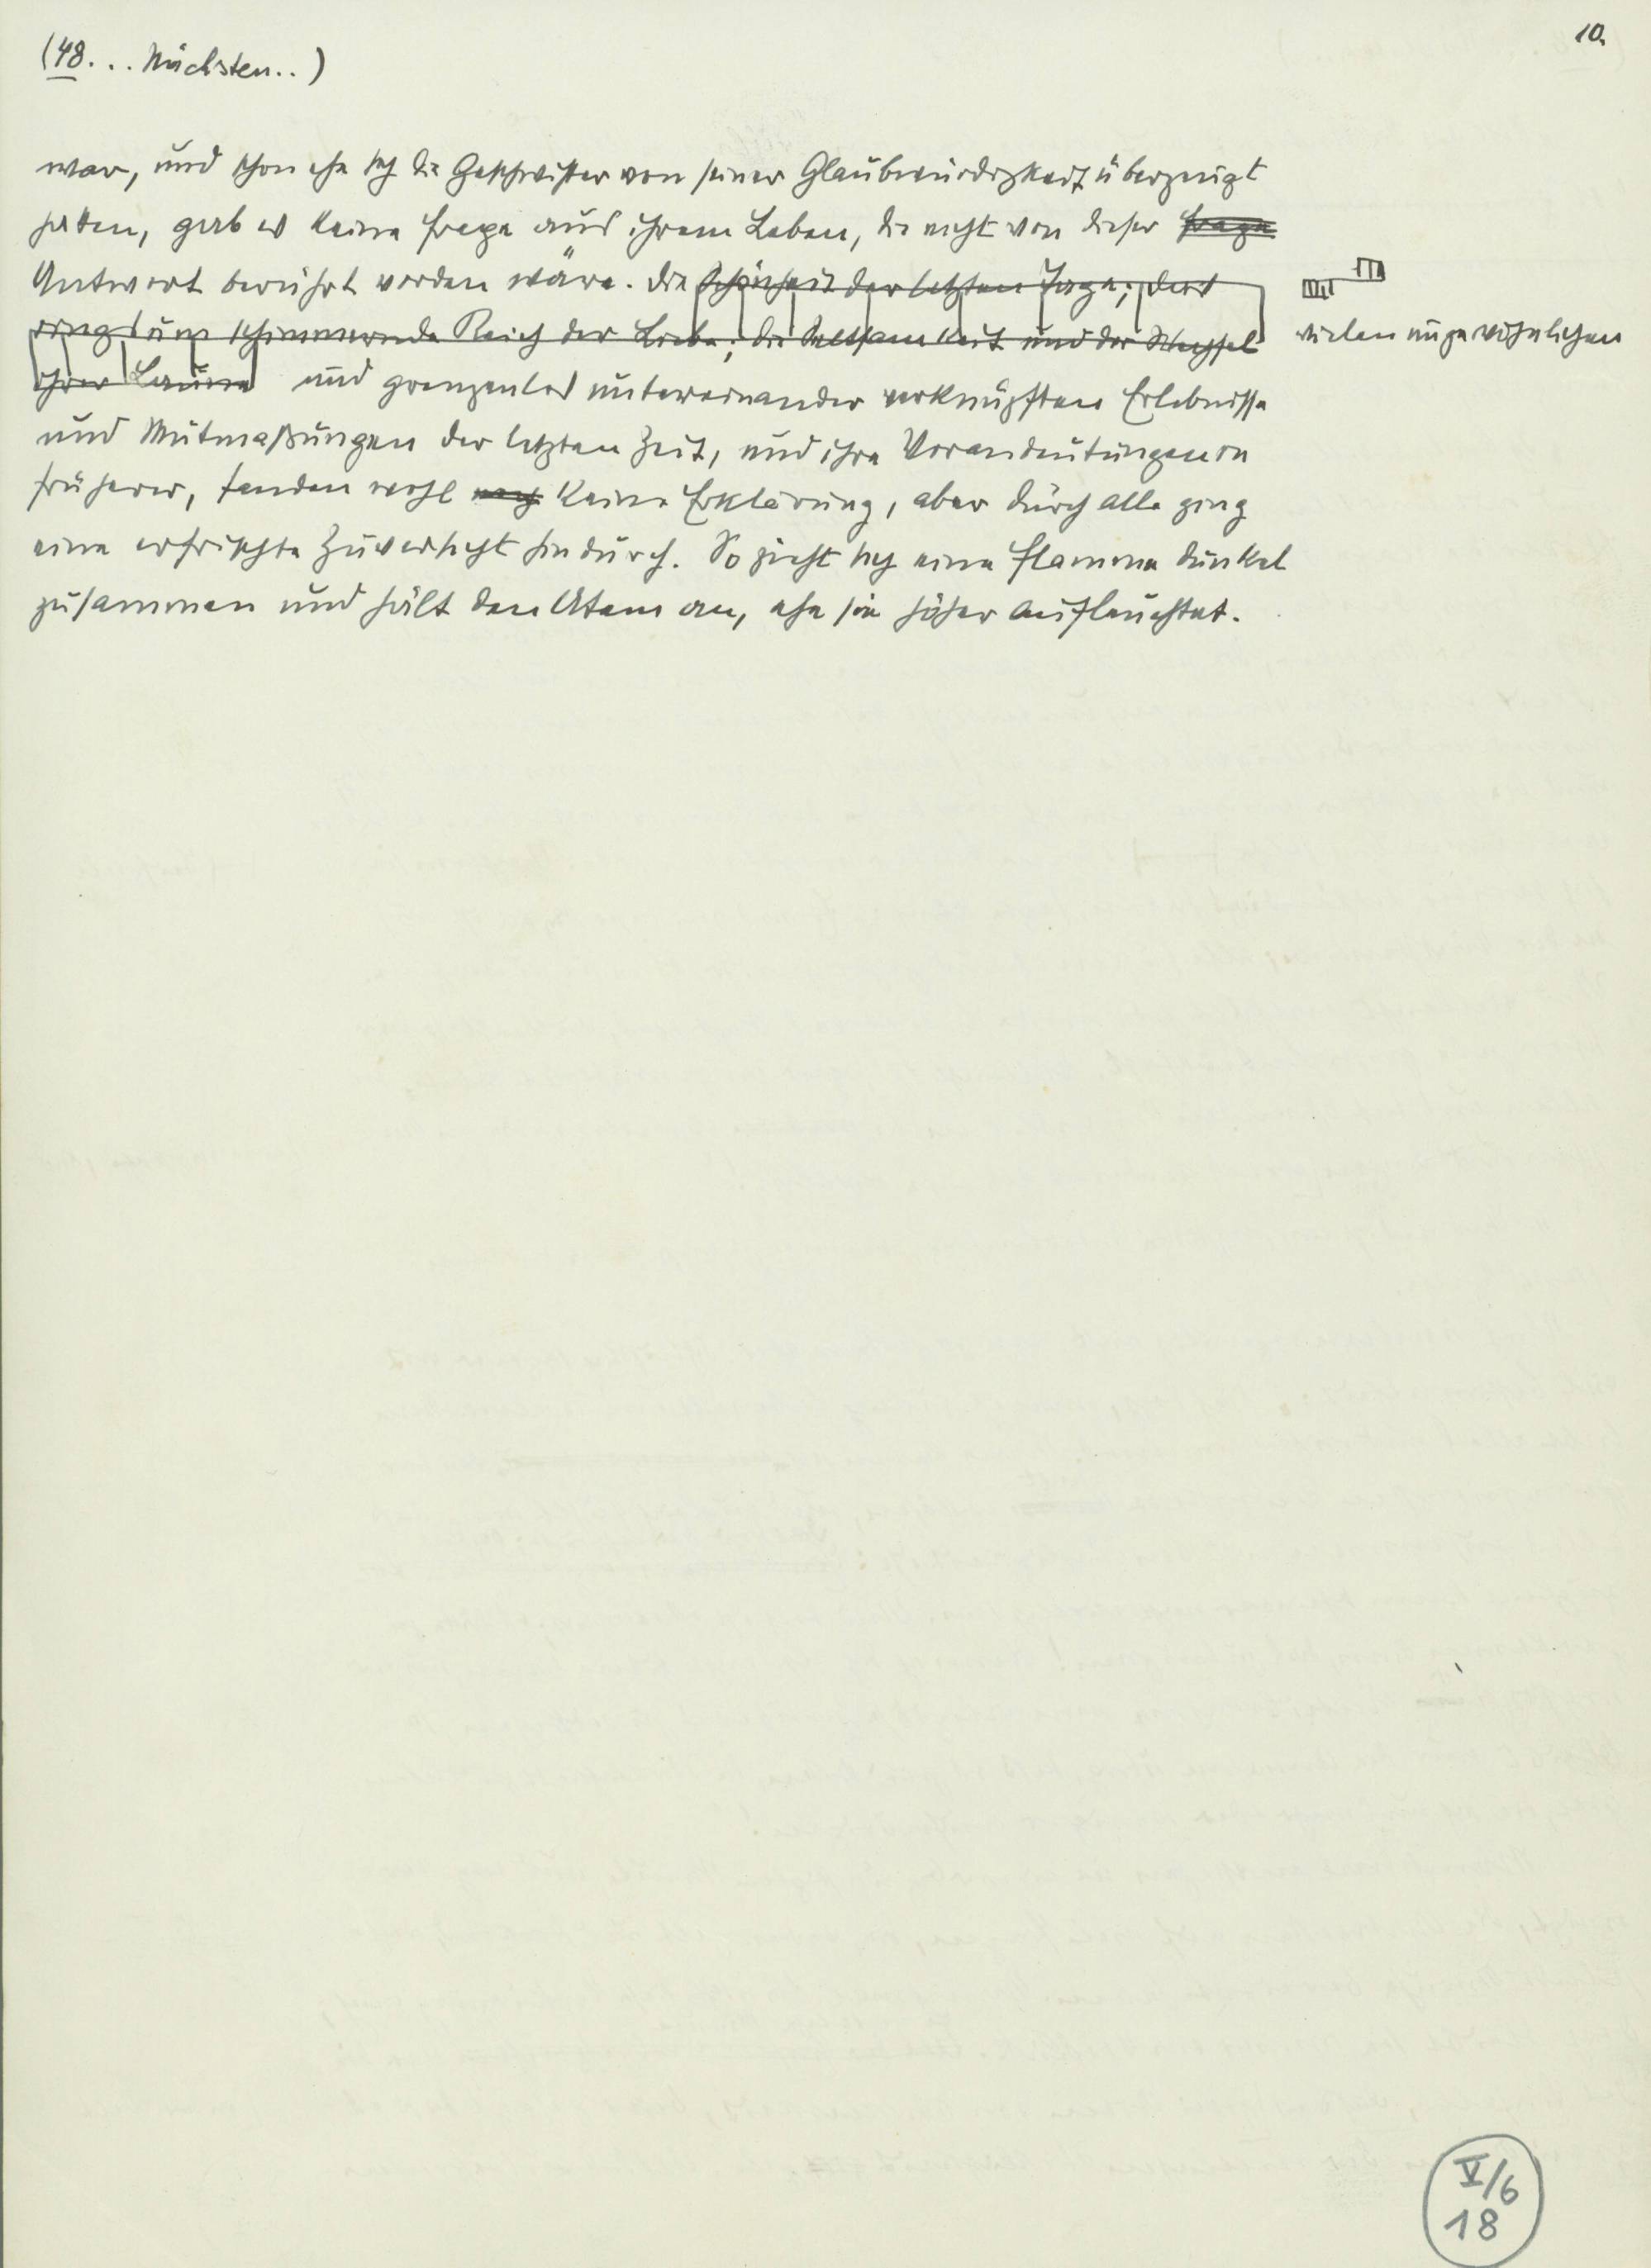 10.
(48... Nächsten..)
war, und schon ehe sich die Geschwister von seiner Glaubwürdigkeit überzeugt
hatten, gab es keine Frage aus ihrem Leben, die nicht von dieser Frage
Antwort berührt worden wäre. Die Schönheit der letzten Tage; das
ringsum schimmernde Reich der Liebe; die Seltsamkeit und der Wechsel
vielen ungewöhnlichen
ihrer Laune und grenzenlos untereinander verknüpften Erlebnisse
und Mutmaßungen der letzten Zeit, und ihre Vorandeutungen in
früherer, fanden wohl noch keine Erklärung, aber durch alle ging
eine erfrischte Zuversicht hindurch. So zieht sich eine Flamme dunkel
zusammen und hält den Atem an, ehe sie höher aufleuchtet.
V/6
18